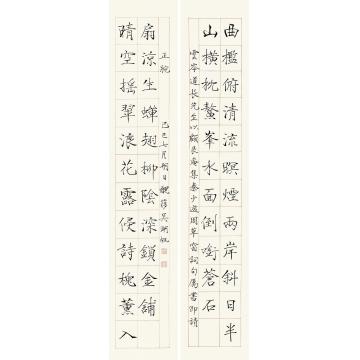 曲檻俯清流暝煙兩岸斜日半
山橫枕鼇峯水面倒銜蒼石
雲岑道長先生以顧艮庵集秦少游周草窗詞句屬書即請
晴空搖翠浪花露侵詩槐薰入
扇涼生蟬翅柳陰深鎖金鋪
正腕
己巳七月朔日醜簃吳湖帆